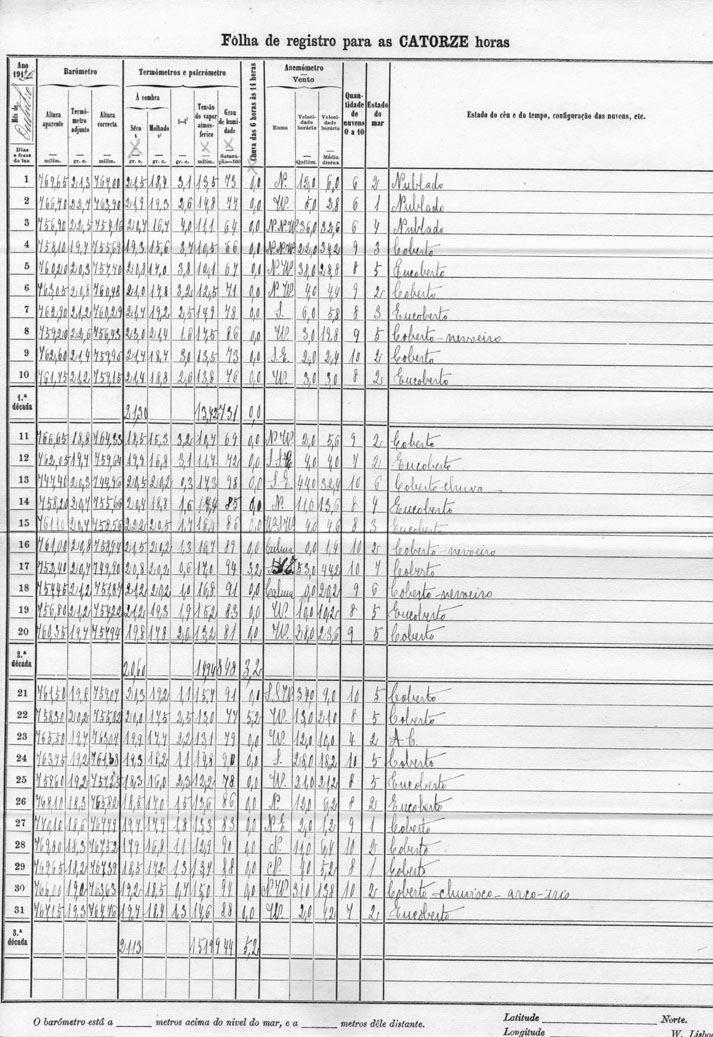 Fôlha de registro para as CATORZE horas
Ano 191
Mês de
Dias e fases da lua
Barómetro
Altura aparente
milím.
Termómetro adjunto
gr. c.
Altura correcta
milím.
Termómetros e psicrómetro
À sombra
Sêco t
gr. c.
Molhado t'
gr. c.
t-t'
gr. c.
Tensão do vapor atmosférico
milím.
Grau de humidade
Saturação=100
Chuva das 6 horas às 14 horas
Anemómetro
Vento
Rumo
Velocidade horária
Quilóm.
Velocidade horária
Média diurna
Quantidade de nuvens 0 a 10
Estado do mar
Estado do céu e do tempo, configuração das nuvens, etc.
1 769,65 21,3 767,00 21,5 18,4 3,1 13,5 73 0,0 N. 12,0 6,0 6 2 Nublado
2 22,4 763,90 21,9 19,3 2,6 14,8 77 0,0 W. 5,0 2,8 6 1 Nublado
3 756,90 22,5 754,16 20,7 16,7 4,0 11,1 64 0,0 N.N.W. 36,0 32,6 6 4 Nublado
4 758,10 19,7 755,69 19,3 15,6 3,7 10,5 66 0,0 N.N.W. 22,0 34,2 9 3 Coberto
5 760,20 20,3 757,70 20,8 17,0 3,8 12,1 67 0,0 N.W. 38,0 28,8 8 5 Encoberto
6 763,05 20,8 760,48 21,0 17,8 3,2 12,5 71 0,0 N.W. 4,0 4,4 9 2 Coberto
7 762,90 21,2 760,29 21,7 19,2 2,5 14,9 78 0,0 S. 6,0 5,8 8 3 Encoberto
8 759,20 22,6 756,43 23,0 21,4 1,6 17,5 86 0,0 W. 3,0 19,8 9 5 Coberto-nevoeiro
9 762,60 21,4 759,96 21,7 18,7 3,0 13,5 73 0,0 S.E. 2,0 2,4 10 2 Coberto
10 761,75 21,2 759,15 21,4 18,8 2,6 13,8 76 0,0 W. 3,0 3,0 8 2 Encoberto
1.ª década 21,30 13,42 73,1 0,0
11 766,65 18,8 764,33 18,5 15,3 3,2 10,7 69 0,0 N.W. 2,0 5,6 9 2 Coberto
12 762,05 19,7 759,64 19,9 16,8 3,1 11,7 72 0,0 S.S.E. 4,0 4,0 7 2 Encoberto
13 747,41 20,3 744,96 20,5 20,2 0,3 17,3 98 0,0 S.E. 44,0 32,4 10 6 Coberto chuva
14 758,20 20,7 755,66 20,4 18,8 1,6 85 0,0 N. 11,0 13,6 8 4 Encoberto
15 761,10 20,7 758,56 22,2 20,5 1,7 16,4 86 0,0 4,0 4,6 8 3 Encoberto
16 761,00 20,8 758,44 21,5 20,2 1,3 16,7 89 0,0 Calma 0,0 1,4 10 2 Coberto-nevoeiro
17 752,40 20,7 749,90 20,8 20,2 0,6 17,0 94 3,2 53,0 44,2 10 7 Coberto
18 754,45 21,2 751,87 21,2 20,2 1,0 16,8 91 0,0 Calma 0,0 20,2 9 6 Coberto-nevoeiro
19 756,80 21,2 754,22 21,2 19,3 1,9 15,2 83 0,0 W. 10,0 19,2 8 5 Encoberto
20 760,35 19,7 757,94 19,8 17,8 2,0 13,2 81 0,0 W. 28,0 23,6 9 5 Coberto
2.ª década 20,60 84,8 3,2
21 761,50 19,8 759,07 20,3 19,2 1,1 15,7 91 0,0 S.S.W. 34,0 9,0 10 5 Coberto
22 758,30 20,2 755,82 20,0 17,5 2,5 13,0 77 5,2 W. 13,0 21,0 8 5 Coberto
23 765,50 19,7 763,07 19,9 17,7 2,2 13,1 79 0,0 W. 12,0 10,0 4 2 A.C.
24 763,75 19,2 17,3 16,2 1,1 90 0,0 S. 28,0 18,2 10 5 Coberto
25 759,60 19,2 757,25 18,3 16,0 2,3 12,2 78 0,0 W. 31,0 21,2 8 5 Encoberto
26 768,10 18,3 765,82 18,5 17,0 1,5 13,6 86 0,0 N. 13,0 6,2 8 2 Encoberto
27 18,6 19,7 17,9 1,8 13,3 83 0,0 N.E. 2,0 1,2 9 1 Coberto
28 18,3 17,9 16,8 1,1 90 N. 11,0 6,8 10 2 Coberto
29 769,65 18,2 767,39 18,5 17,2 1,3 88 0,0 N. 4,0 5,2 8 1 Coberto
30 19,2 18,5 0,7 15,0 94 0,0 N.W. 31,0 13,8 10 2 Coberto-chuvisco-arco-iris
31 767,15 19,3 764,76 19,7 18,4 1,3 14,6 88 0,0 W. 2,0 4,2 7 2 Encoberto
3.ª década 5,2
O barómetro está a ______ metros acima do nível do mar, e a ______ metros dêle distante.
Latitude ______ Norte.
Longitude ______ W. Lisboa